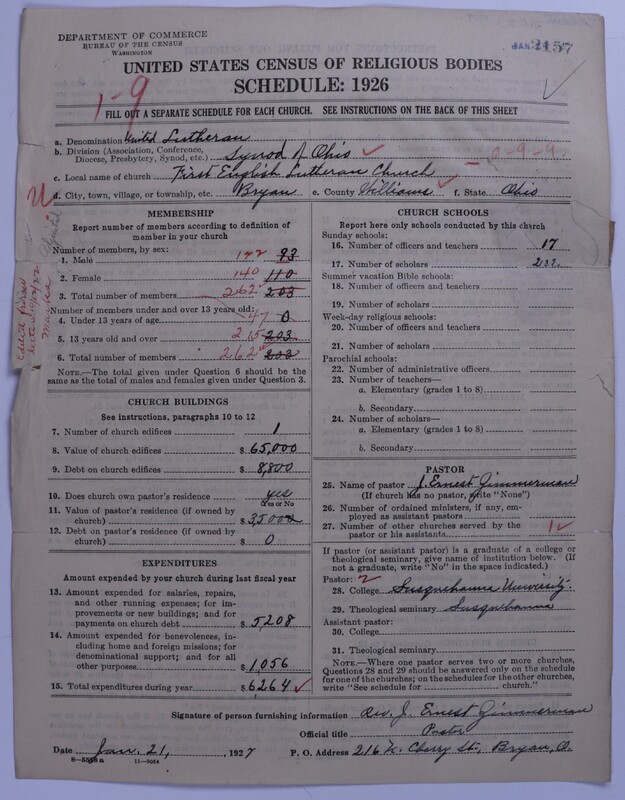 DEPARTMENT OF COMMERCE
BUREAU OF THE CENSUS
WASHINGTON
JAN 2157
UNITED STATES CENSUS OF RELIGIOUS BODIES
SCHEDULE: 1926
1-9
FILL OUT A SEPARATE SCHEDULE FOR EACH CHURCH. SEE INSTRUCTIONS ON THE BACK OF THIS SHEET
a. Denomination United Lutheran
b. Division (Association, Conference, Diocese, Presbytery, Synod, etc.) Synod of Ohio
c. Local name of church First English Lutheran Church
d. City, town, village, or township, etc. Bryan e. County Williams f. State Ohio
MEMBERSHIP
Report number of members according to definition of
member in your church
Number of members, by sex:
1. Male 122 93
2. Female 140 110
3. Total number of members 262 203
Number of members under and over 13 years old:
4. Under 13 years of age 47 0
5. 13 years old and over 215 203
6. Total number of members 262 203
NOTE.—The total given under Question 6 should be
the same as the total of males and females given under Question 3.
CHURCH BUILDINGS
See instructions, paragraphs 10 to 12
7. Number of church edifices 1
8. Value of church edifices $ 65,000
9. Debt on church edifices $ 8,800
10. Does church own pastor's residence yes
Yes or No
11. Value of pastor's residence (if owned by
church) $ 3500
12. Debt on pastor's residence (if owned by
church) $ 0
EXPENDITURES
Amount expended by your church during last fiscal year
13. Amount expended for salaries, repairs,
and other running expenses; for im-
provements or new buildings; and for
payments on church debt $ 5,208
14. Amount expended for benevolences, in-
cluding home and foreign missions; for
denominational support; and for all
other purposes $ 1,056
15. Total expenditures during year $ 6264
CHURCH SCHOOLS
Report here only schools conducted by this church
Sunday schools:
16. Number of officers and teachers 17
17. Number of scholars 232
Summer vacation Bible schools:
18. Number of officers and teachers
19. Number of scholars
Week-day religious schools:
20. Number of officers and teachers
21. Number of scholars
Parochial schools:
22. Number of administrative officers
23. Number of teachers—
a. Elementary (grades 1 to 8)
b. Secondary
24. Number of scholars—
a. Elementary (grades 1 to 8)
b. Secondary
PASTOR
25. Name of pastor J. Ernest Zimmerman
(If church has no pastor, write "None")
26. Number of ordained ministers, if any, em-
ployed as assistant pastors
27. Number of other churches served by the
pastor or his assistants 1
If pastor (or assistant pastor) is a graduate of a college or
theological seminary, give name of institution below. (If
not a graduate, write "No" in the space indicated.)
Pastor: 2
28. College Susquehanna University
29. Theological seminary Susquehanna
Assistant pastor:
30. College
31. Theological seminary
NOTE.—Where one pastor serves two or more churches,
Questions 28 and 29 should be answered only on the schedule
for one of the churches; on the schedules for the other churches,
write "See schedule for church."
Signature of person furnishing information Rev. J. Ernest Zimmerman
Official title Pastor
Date Jan. 21, 1927 P. O. Address 216 N. Cherry St., Bryan, O.
8-5518a 11-9064